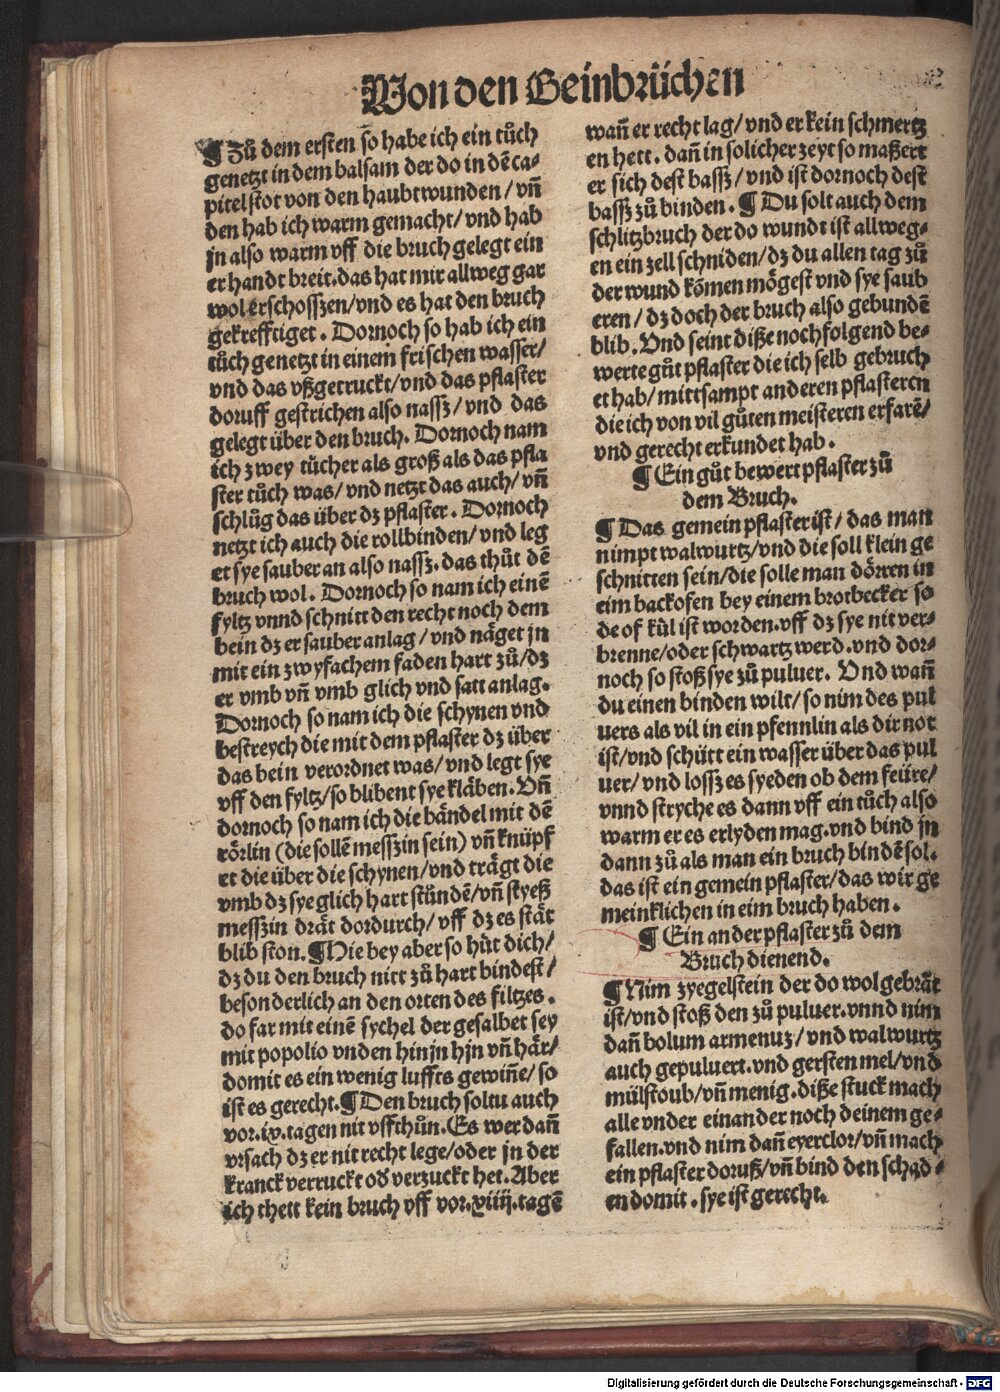 Von den Beinbrüchen
¶ Zů dem ersten so habe ich ein tůch
genetzt in dem balsam der do in dē ca⸗
pitel stot von den haubtwunden / vñ
den hab ich warm gemacht / vnd hab
jn also warm vff die bruch gelegt ein
er handt breit. das hat mir allweg gar
wol erschossʒen / vnd es hat den bruch
gekrefftiget. Dornoch so hab ich ein
tůch genetzt in einem frischen wasser /
vnd das vßgetruckt / vnd das pflaster
doruff gestrichen also nassʒ / vnd das
gelegt über den bruch. Dornoch nam
ich zwey tücher als groß als das pfla
ster tůch was / vnd netzt das auch / vñ
schlůg das über dʒ pflaster. Dornoch
netzt ich auch die rollbinden / vnd leg
et sye sauber an also nassʒ. das thůt dē
bruch wol. Dornoch so nam ich einē
fyltz vnnd schnitt den recht noch dem
bein dʒ er sauber anlag / vnd näget jn
mit ein zwyfachem faden hart zů / dʒ
er vmb vñ vmb glich vnd satt anlag.
Dornoch so nam ich die schynen vnd
bestreych die mit dem pflaster dʒ über
das bein verordnet was / vnd legt sye
vff den fyltz / so blibent sye kläben. Vñ
dornoch so nam ich die bändel mit dē
rörlin (die sollē messʒin sein) vñ knüpf
et die über die schynen / vnd trägt die
vmb dʒ sye glich hart stündē / vñ styeß
messʒin drät dordurch / vff dʒ es stät
blib ston. ¶ Hie bey aber so hüt dich /
dʒ du den bruch nitt zů hart bindest /
besonderlich an den orten des filtzes.
do far mit einē sychel der gesalbet sey
mit popolio vnden hinjn hjn vñ här /
domit es ein wenig luffts gewiñe / so
ist es gerecht. ¶ Den bruch soltu auch
vor .ix. tagen nit vffthůn. Es wer dañ
vrsach dʒ er nit recht lege / oder jn der
kranck verruckt oď verzuckt het. Aber
ich thett kein bruch vff vor .xiiij. tagē
wañ er recht lag / vnd er kein schmertz
en hett. dañ in solicher zeyt so maßert
er sich dest bassʒ / vnd ist dornoch dest
bassʒ zů binden. ¶ Du solt auch dem
schlitzbruch der do wundt ist allweg⸗
en ein zell schniden / dʒ du allen tag zů
der wund kōmen mögest vnd sye saub
eren / dʒ doch der bruch also gebundē
blib. Vnd seint diße nochfolgend be⸗
werte gůt pflaster die ich selb gebruch
et hab / mittsampt anderen pflasteren
die ich von vil gůten meisteren erfarē /
vnd gerecht erkundet hab.
¶ Ein gůt bewert pflaster zů
dem Bruch.
¶ Das gemein pflaster ist / das man
nimpt walwurtz / vnd die soll klein ge
schnitten sein / die solle man dörren in
eim backofen bey einem brotbecker so
de of kül ist worden. vff dʒ sye nit ver⸗
brenne / oder schwartz werd. vnd dor⸗
noch so stoß sye zů puluer. Vnd wañ
du einen binden wilt / so nim des pul
uers als vil in ein pfennlin als dir not
ist / vnd schütt ein wasser über das pul
uer / vnd lossʒ es syeden ob dem feüre /
vnnd stryche es dann vff ein tůch also
warm er es erlyden mag. vnd bind jn
dann zů als man ein bruch bindē sol.
das ist ein gemein pflaster / das wir ge
meinklichen in eim bruch haben.
¶ Ein ander pflaster zů dem
Bruch dienend.
¶ Nim zyegelstein der do wol gebrät
ist / vnd stoß den zů puluer. vnnd nim
dañ bolum armenuʒ / vnd walwurtz
auch gepuluert. vnd gersten mel / vnd
mülstoub / vñ menig. diße stuck mach
alle vnder einander noch deinem ge⸗
fallen. vnd nim dañ eyerclor / vñ mach
ein pflaster doruß / vñ bind den schad⸗
en domit. sye ist gerecht.
Digitalisierung gefördert durch die Deutsche Forschungsgemeinschaft - DFG